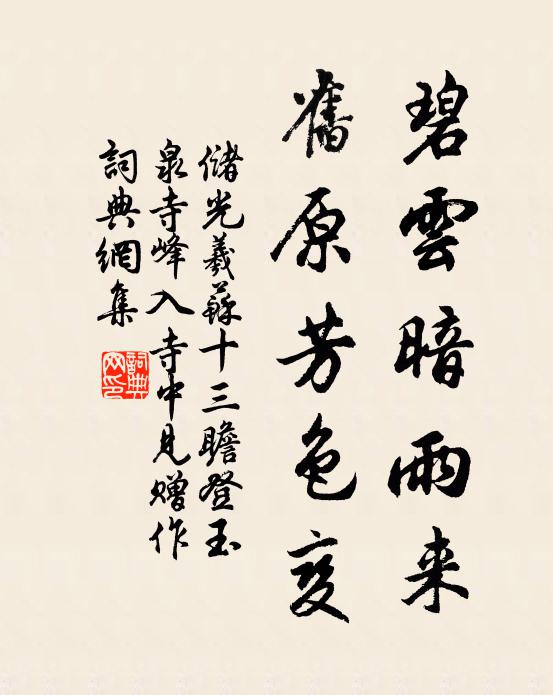 碧雲暗雨来
舊原芳色变
儲光羲蘇十三瞻登玉
泉寺峰入寺中見贈作
詞典網集
詞典
网印